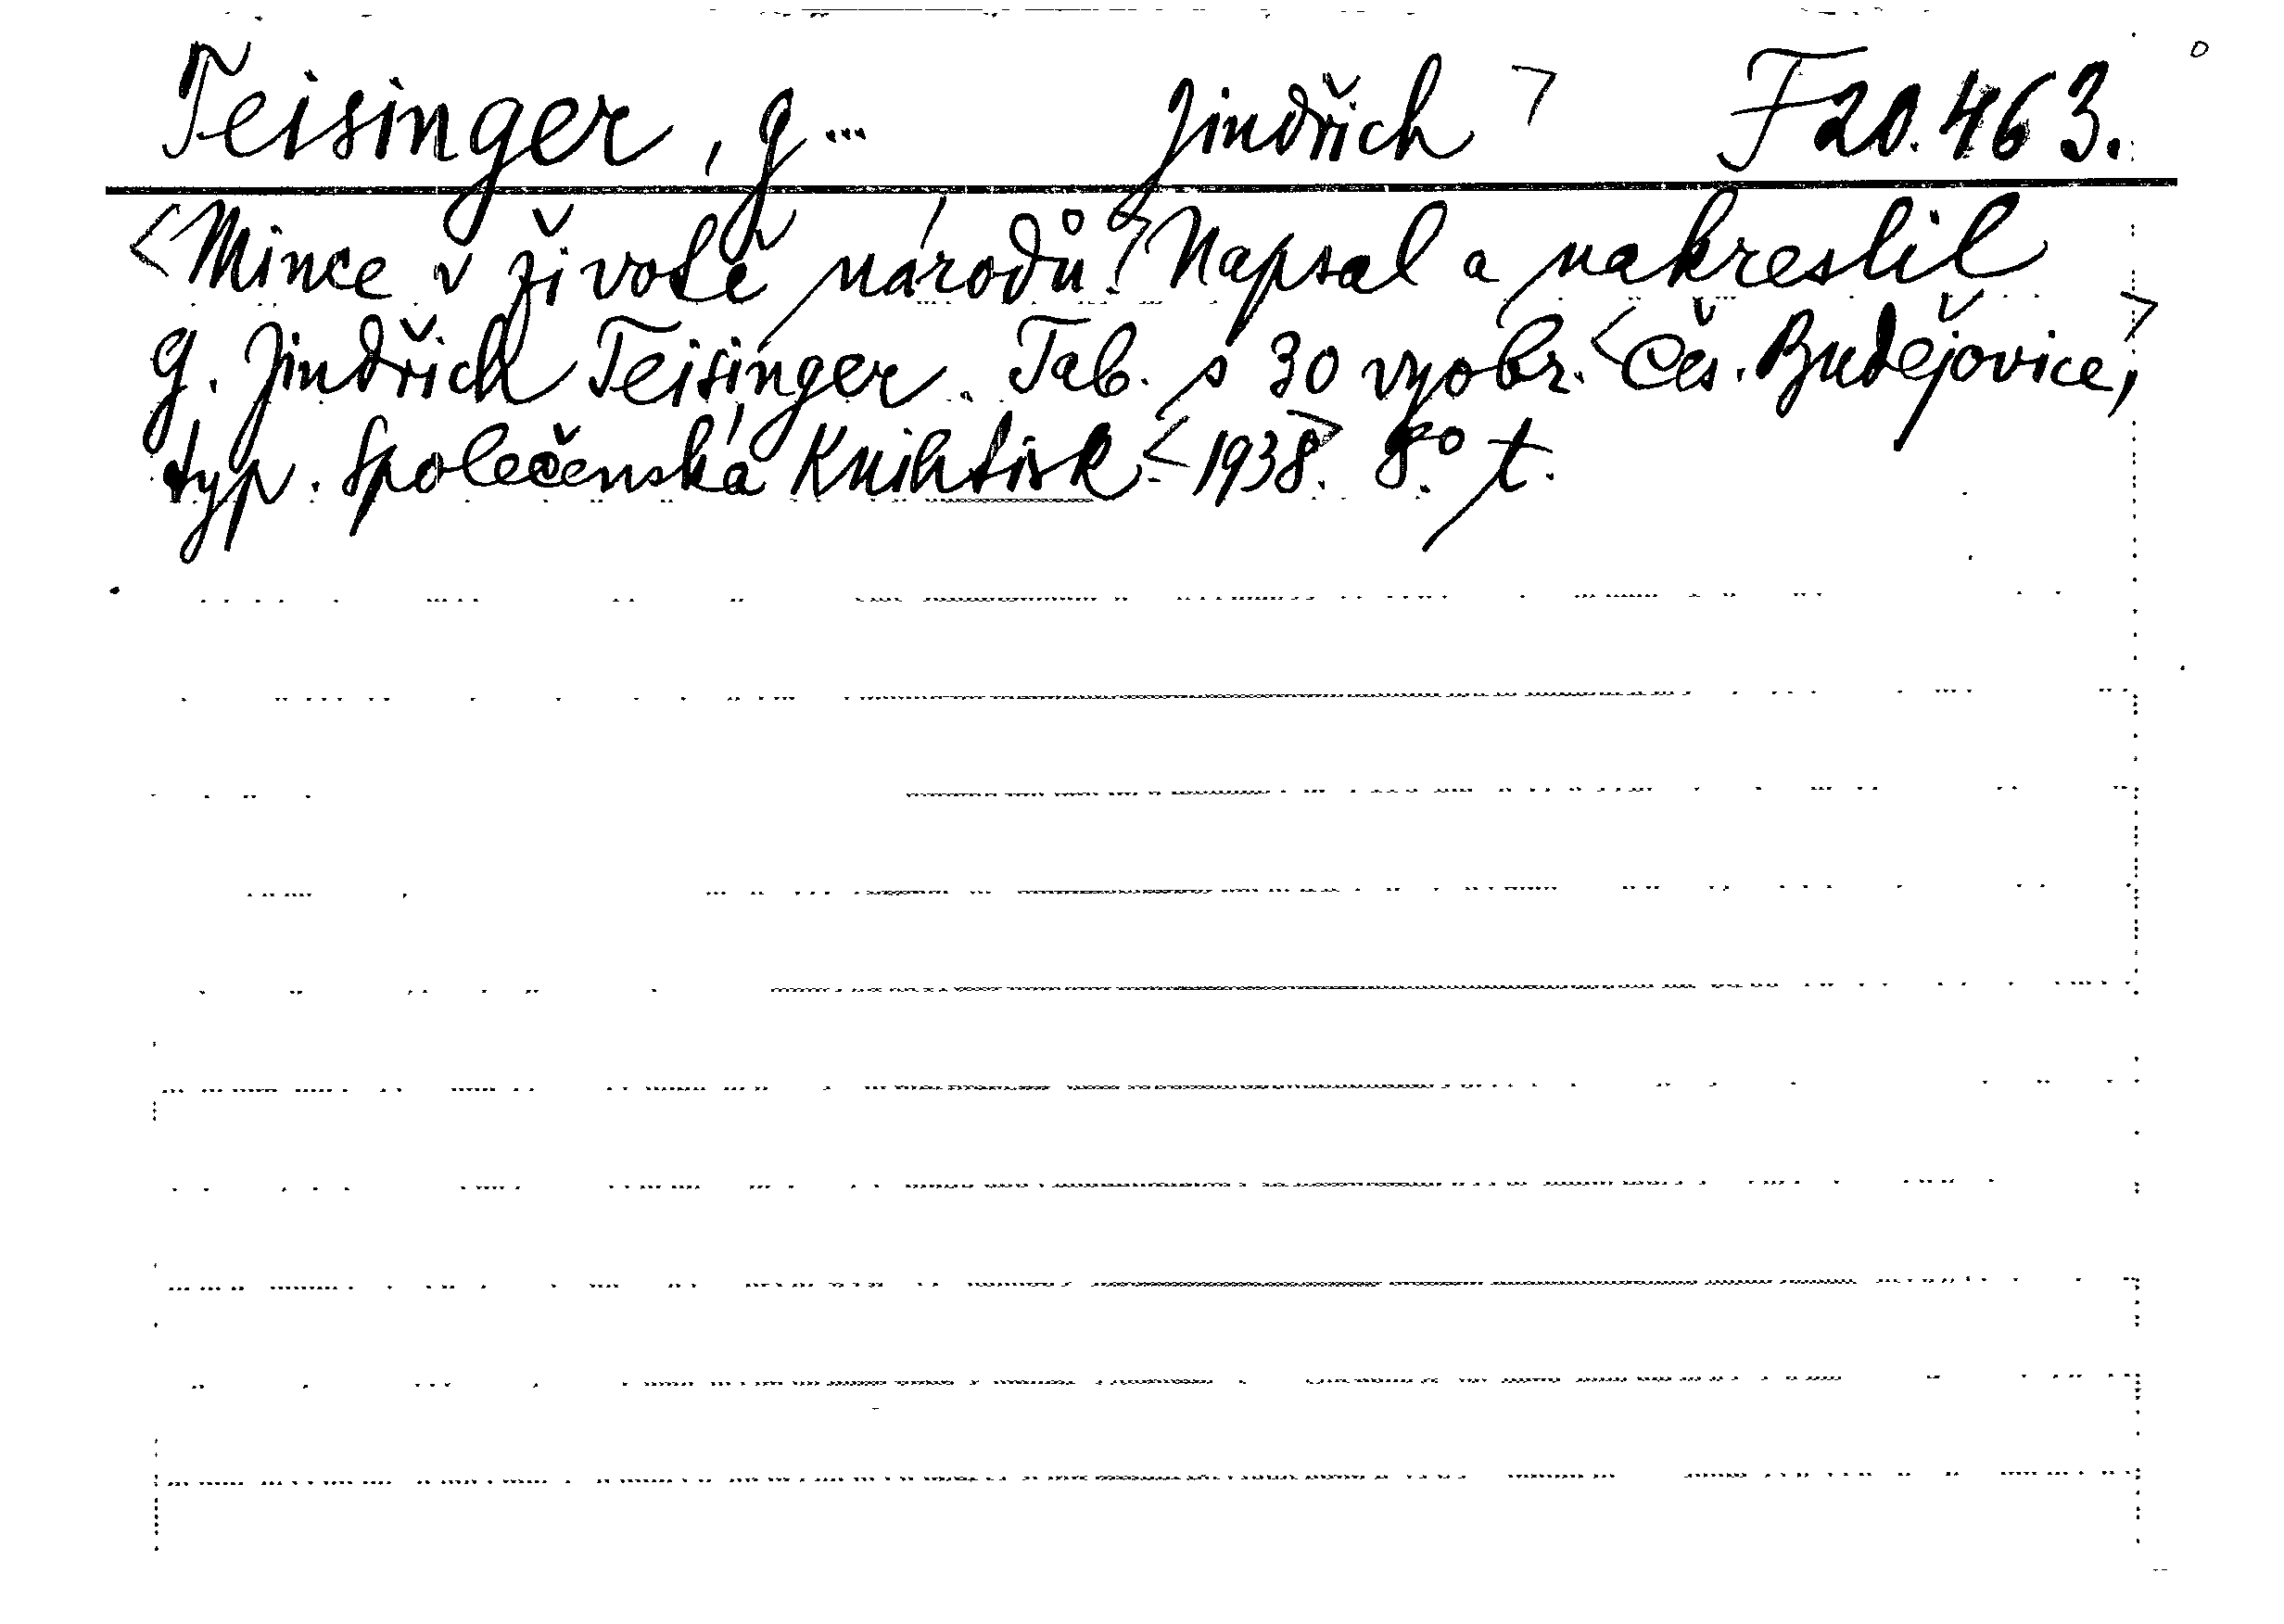 Teisinger, G... Jindřich > F 20.463.
<Mince v životě národů.> Napsal a nakreslil
G. Jindřich Teisinger. Tab. s 30 vyobr. <Čes. Budějovice,>
typ. Společenská Knihtisk. <1938>. 8.° t.